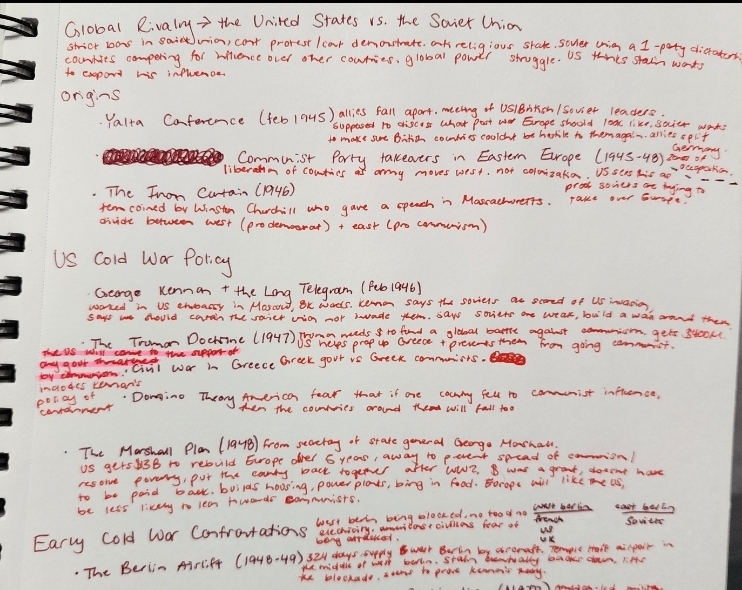 Global Rivalry → the United States vs. the Soviet Union
strict bans in soviet union, cant protest/cant demonstrate. anti religious state. soviet union a 1-party dictatorshi
countries competing for influence over other countries. global power struggle. US thinks stalin wants
to expand his influence.
origins
· Yalta Conference (feb 1945) allies fall apart. meeting of US/British/Soviet leaders.
supposed to discuss what post war Europe should look like. soviet wants
to make sure British countries couldnt be hostile to them again. allies split
Germany.
· Communist Party takeovers in Eastern Europe (1945-48) zones of
occupation.
liberation of countries as army moves west. not colonization. US sees this as
proof soviets are trying to
take over Europe.
· The Iron Curtain (1946)
term coined by Winston Churchill who gave a speech in Massachusetts.
divide between west (prodemocrat) + east (pro communism)
US Cold War Policy
· George Kennan + the Long Telegram (feb 1946)
worked in US embassy in Moscow, 8k words. Kennan says the soviets are scared of US invasion,
says we should contain the soviet union not invade them. says soviets are weak, build a wall around them
· The Truman Doctrine (1947) Truman needs $ to fund a global battle against communism, gets $400M.
US helps prop up Greece + prevents them from going communist.
the US will come to the support of
any govt threatened
by communism
· Civil War in Greece Greek govt vs Greek communists.
includes Kennan's
policy of
containment
· Domino Theory America fear that if one country fell to communist influence,
then the countries around them will fall too
· The Marshall Plan (1948) from secretary of state general George Marshall.
US gets $13B to rebuild Europe after 6 years, a way to prevent spread of communism/
resolve poverty, put the country back together after WW2. $ was a grant, doesnt have
to be paid back. builds housing, power plants, bring in food. Europe will like the US,
be less likely to lean towards communists.
Early Cold War Confrontations
west berlin being blocked, no food no
electricity. americans + civilians fear of
being attacked.
west berlin
french
US
UK
east berlin
Soviets
· The Berlin Airlift (1948-49) 324 days. supply west Berlin by aircraft. Temple Hoff airport in
the middle of west berlin. Stalin eventually backs down, lifts
the blockade. seems to prove Kennan's theory.
(NATO)